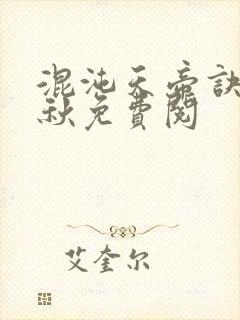 混沌天帝訣
秋免費閱
艾奎尔